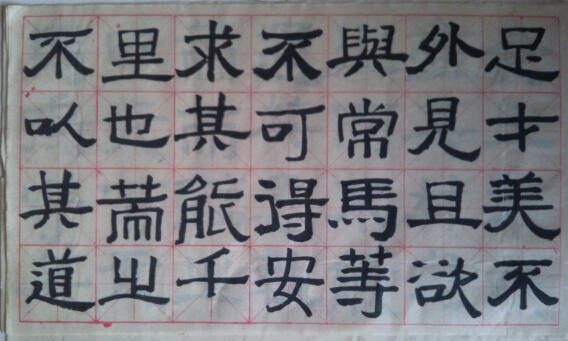 足才美不
外見且欲
與常馬等
不可得安
求其能千
里也策之
不以其道